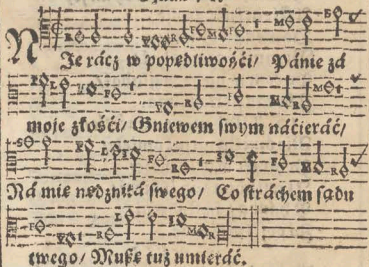 NIe rácz w popędliwośći/ Pánie zá
moje złośći/ Gniewem swym náćieráć/
Ná mię nędzniká swego/ Co stráchem sądu
twego/ Muszę tuż umieráć.